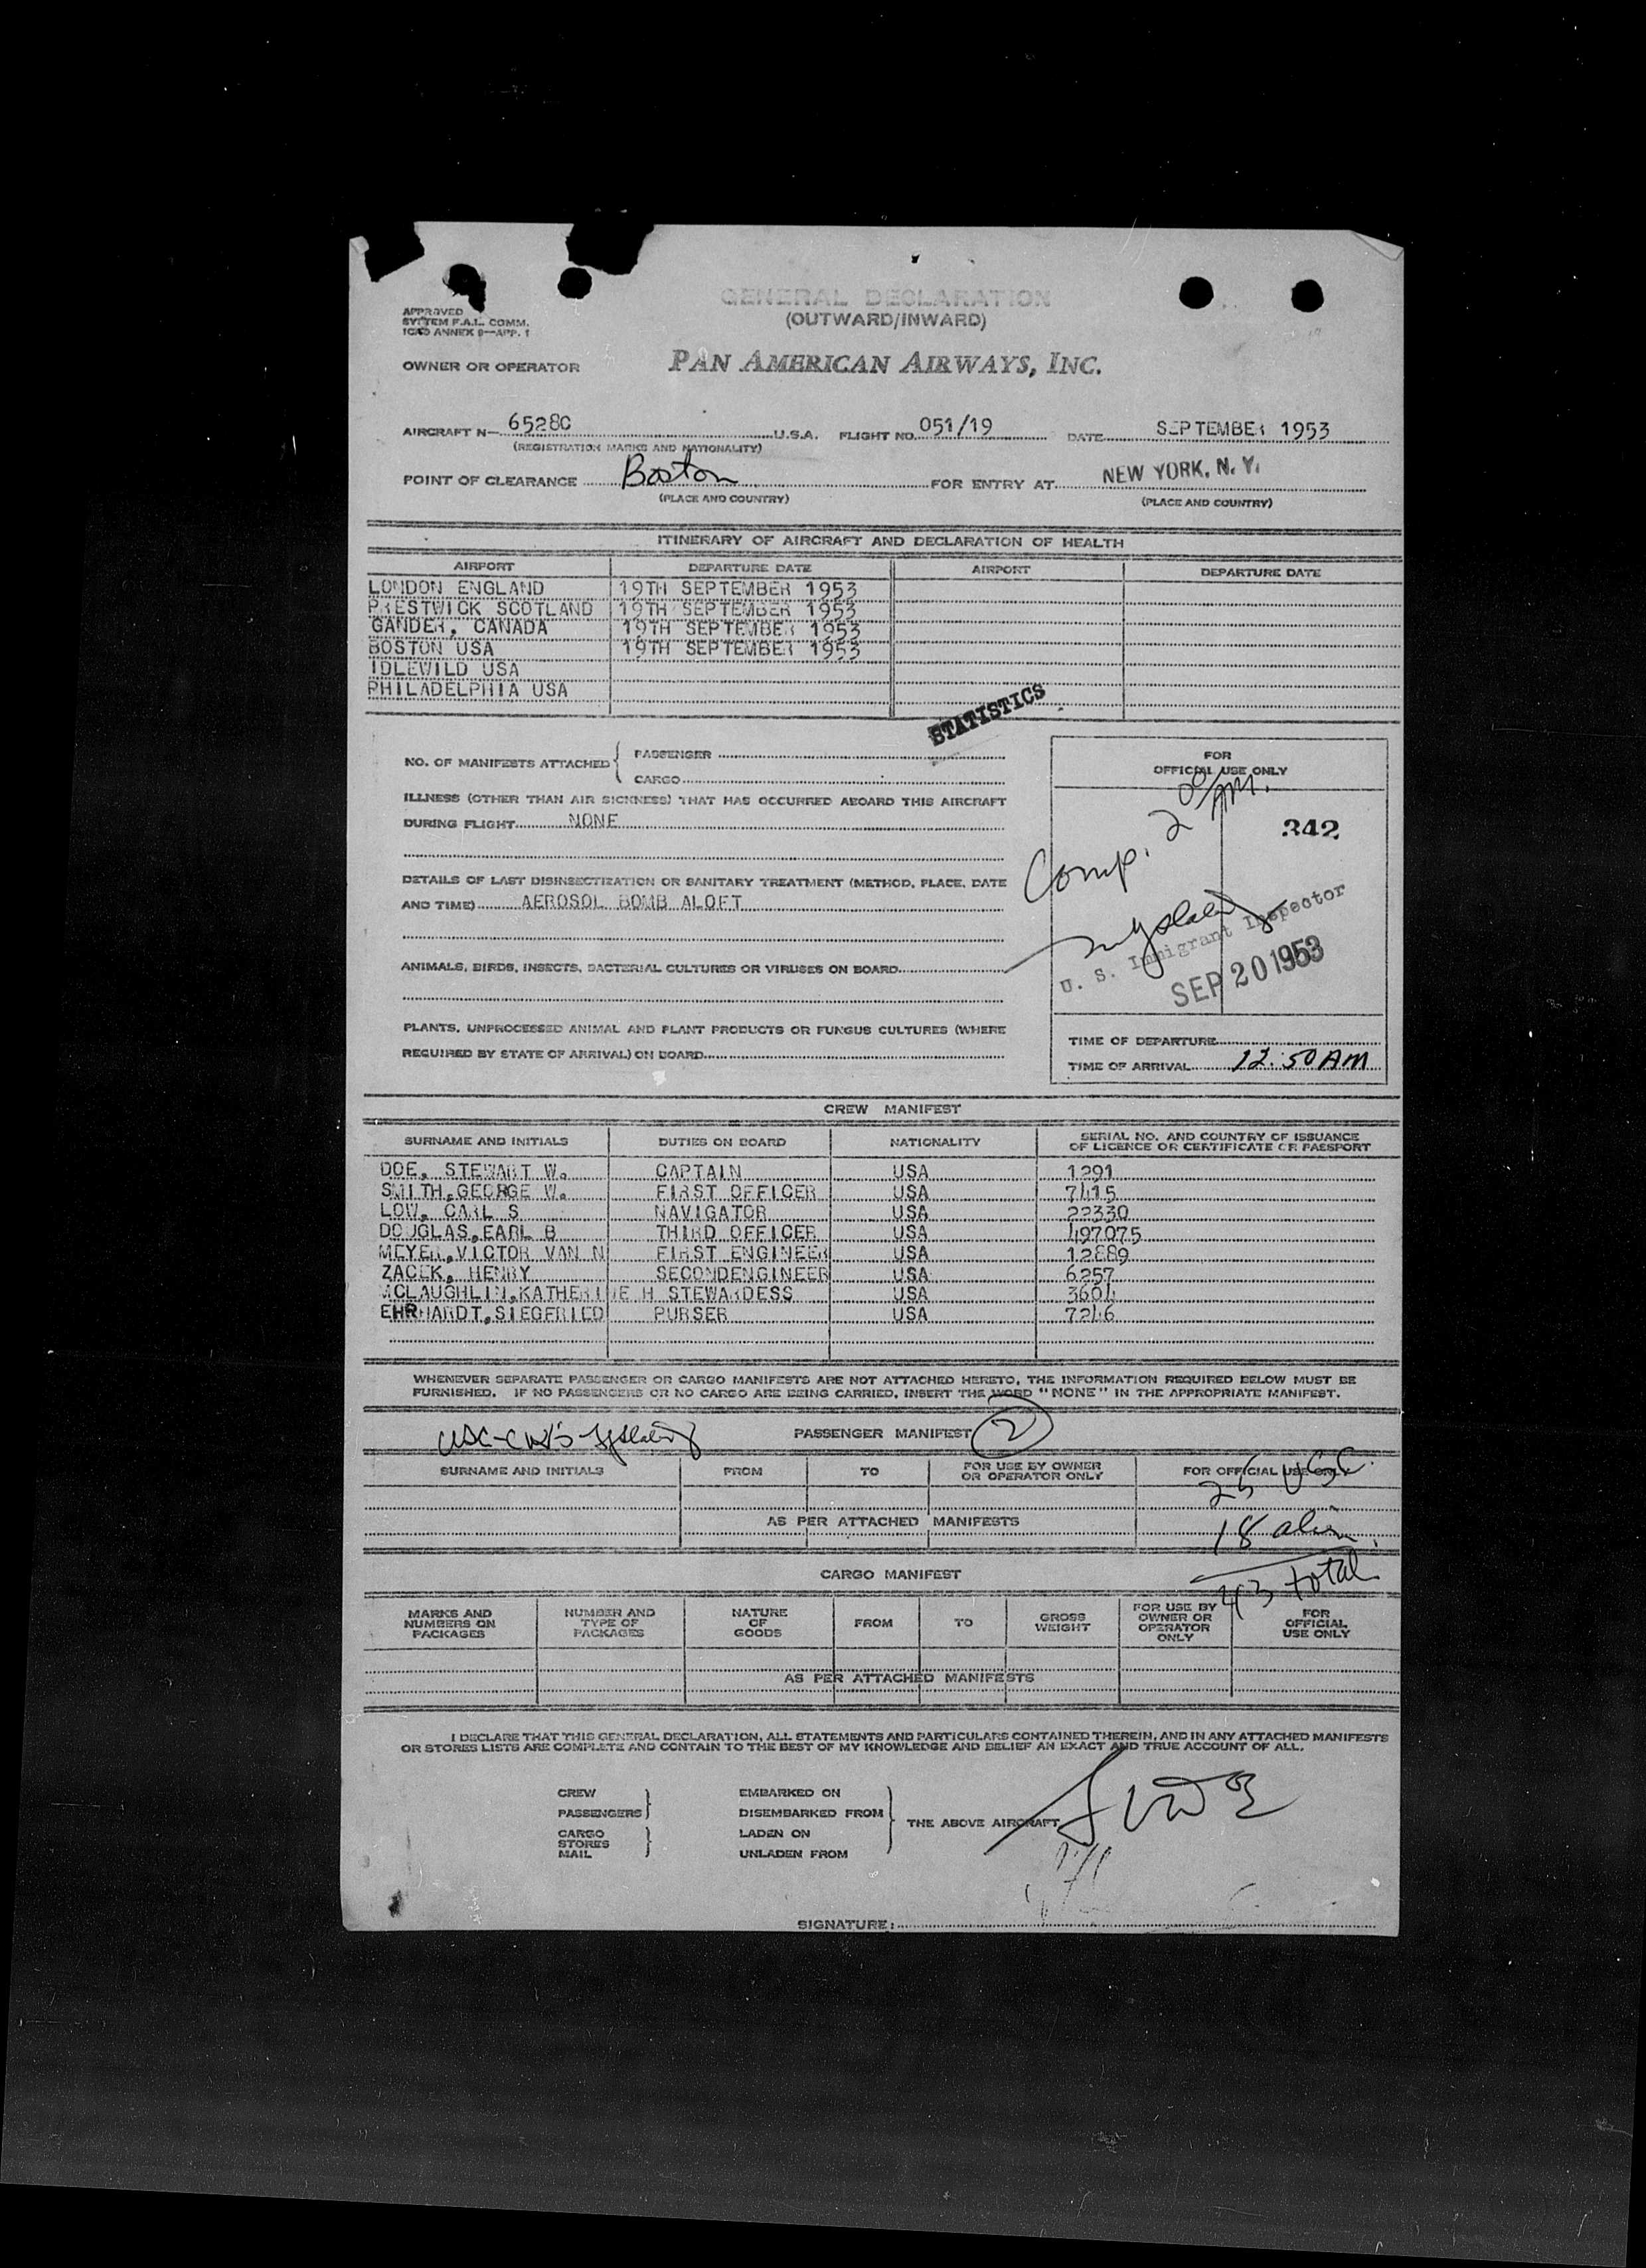 GENERAL DECLARATION
(OUTWARD/INWARD)
APPROVED
SYSTEM F.A.L. COMM.
ICAO ANNEX 9—APP. 1
OWNER OR OPERATOR PAN AMERICAN AIRWAYS, INC.
AIRCRAFT N— 6528C U.S.A. FLIGHT NO. 051/19 DATE SEPTEMBER 1953
(REGISTRATION MARKS AND NATIONALITY)
POINT OF CLEARANCE Boston FOR ENTRY AT NEW YORK, N. Y.
(PLACE AND COUNTRY) (PLACE AND COUNTRY)
ITINERARY OF AIRCRAFT AND DECLARATION OF HEALTH
AIRPORT DEPARTURE DATE AIRPORT DEPARTURE DATE
LONDON ENGLAND 19TH SEPTEMBER 1953
PRESTWICK SCOTLAND 19TH SEPTEMBER 1953
GANDER, CANADA 19TH SEPTEMBER 1953
BOSTON USA 19TH SEPTEMBER 1953
IDLEWILD USA
PHILADELPHIA USA
STATISTICS
NO. OF MANIFESTS ATTACHED { PASSENGER
CARGO
FOR
OFFICIAL USE ONLY
ILLNESS (OTHER THAN AIR SICKNESS) THAT HAS OCCURRED ABOARD THIS AIRCRAFT
DURING FLIGHT NONE
Comp. 2 00 AM.
342
DETAILS OF LAST DISINSECTIZATION OR SANITARY TREATMENT (METHOD, PLACE, DATE
AND TIME) AEROSOL BOMB ALOFT
U. S. Immigrant Inspector
SEP 20 1953
ANIMALS, BIRDS, INSECTS, BACTERIAL CULTURES OR VIRUSES ON BOARD
PLANTS, UNPROCESSED ANIMAL AND PLANT PRODUCTS OR FUNGUS CULTURES (WHERE
REQUIRED BY STATE OF ARRIVAL) ON BOARD
TIME OF DEPARTURE
TIME OF ARRIVAL 12:50 AM
CREW MANIFEST
SURNAME AND INITIALS DUTIES ON BOARD NATIONALITY SERIAL NO. AND COUNTRY OF ISSUANCE
OF LICENCE OR CERTIFICATE OR PASSPORT
DOE, STEWART W. CAPTAIN USA 1291
SMITH,GEORGE W. FIRST OFFICER USA 7415
LOW, CARL S NAVIGATOR USA 22330
DOUGLAS,EARL B THIRD OFFICER USA 497075
MEYER,VICTOR VAN N FIRST ENGINEER USA 12889
ZACEK, HENRY SECONDENGINEER USA 6257
MCLAUGHLIN,KATHERINE H STEWARDESS USA 3604
EHRHARDT,SIEGFRIED PURSER USA 7246
WHENEVER SEPARATE PASSENGER OR CARGO MANIFESTS ARE NOT ATTACHED HERETO, THE INFORMATION REQUIRED BELOW MUST BE
FURNISHED. IF NO PASSENGERS OR NO CARGO ARE BEING CARRIED, INSERT THE WORD "NONE" IN THE APPROPRIATE MANIFEST.
PASSENGER MANIFEST 2
SURNAME AND INITIALS FROM TO FOR USE BY OWNER
OR OPERATOR ONLY FOR OFFICIAL USE ONLY
25 USC.
AS PER ATTACHED MANIFESTS
18 alien
43 total
CARGO MANIFEST
MARKS AND
NUMBERS ON
PACKAGES NUMBER AND
TYPE OF
PACKAGES NATURE
OF
GOODS FROM TO GROSS
WEIGHT FOR USE BY
OWNER OR
OPERATOR
ONLY FOR
OFFICIAL
USE ONLY
AS PER ATTACHED MANIFESTS
I DECLARE THAT THIS GENERAL DECLARATION, ALL STATEMENTS AND PARTICULARS CONTAINED THEREIN, AND IN ANY ATTACHED MANIFESTS
OR STORES LISTS ARE COMPLETE AND CONTAIN TO THE BEST OF MY KNOWLEDGE AND BELIEF AN EXACT AND TRUE ACCOUNT OF ALL.
CREW EMBARKED ON
PASSENGERS DISEMBARKED FROM
THE ABOVE AIRCRAFT
CARGO LADEN ON
STORES
MAIL UNLADEN FROM
SIGNATURE: